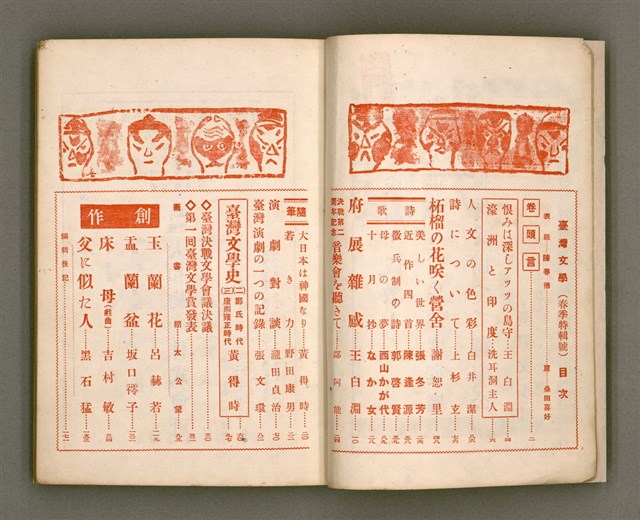 臺灣文學(春季特輯號) 目次
卷頭言……二
恨みは深しアッツの島守……王白淵……四
濠洲と印度……洗耳洞主人……六
人文の色彩……白井潔
詩について……上杉克
柘榴の花咲く營舍……謝恕里
詩
美しい世界……張冬芳
近作四首……陳遜源
徵兵制の詩……郭啓賢
歌
母の夢……西山かが代
十月抄……なか女
府展雜感……王白淵
音樂會を聽きて
隨筆
大日本は神國なり……黃得時
若き力……野田康男
演劇對談……瀧田貞治
臺灣演劇の一つの記錄……張文環
臺灣文學史
(二)鄭氏時代
(三)康熙雍正時代
黃得時
◇臺灣決戰文學會議決議
◇第一回臺灣文學賞發表
創作
玉蘭花……呂赫若
盂蘭盆……坂口䙥子
床母(戲曲)……吉村敏
父に似た人……黑石猛
編輯後記